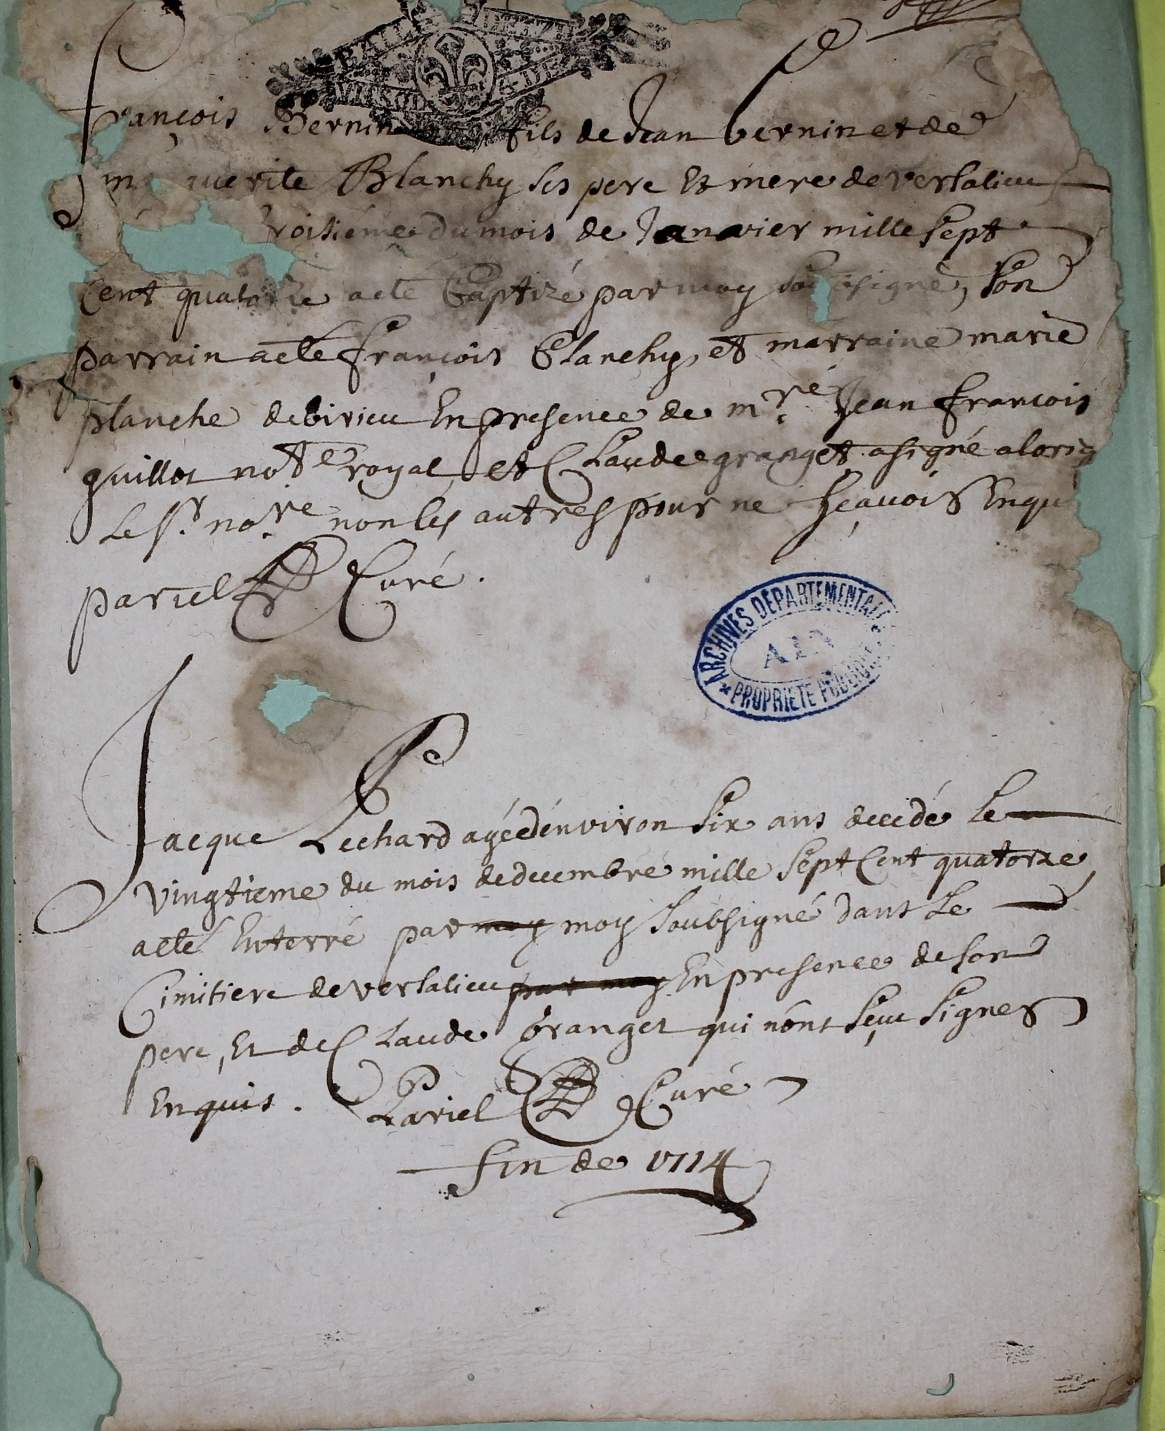 françois Bernin fils de Jean bernin et de
merite Blanchy ses pere Et mere de versalieu
roisiéme du mois de Janavier mille sept
Cent quatorze a eté Baptizé par moy soubsigné, son
parrain a eté françois Blanchy, et marraine marie
planche de birieu En presence de mre Jean francois
guillot notre royal, et Claude granget a signé alorig
Le sr. nore non les autres pour ne sçavoir Enqu
pariel Curé.
ARCHIVES DEPARTEMENTALES
AIN
PROPRIETE PUBLIQUE
Jacque Lechard agée d'environ six ans decedé le
vingtieme du mois de decembre mille sept Cent quatorze,
a eté Enterré par moy moy soubsigné dans le
Cimitiere de versalieu par moy En presence de son
pere, Et de Claude Granget qui n'ont sçeu signer
Enquis. Pariel Curé
fin de 1714